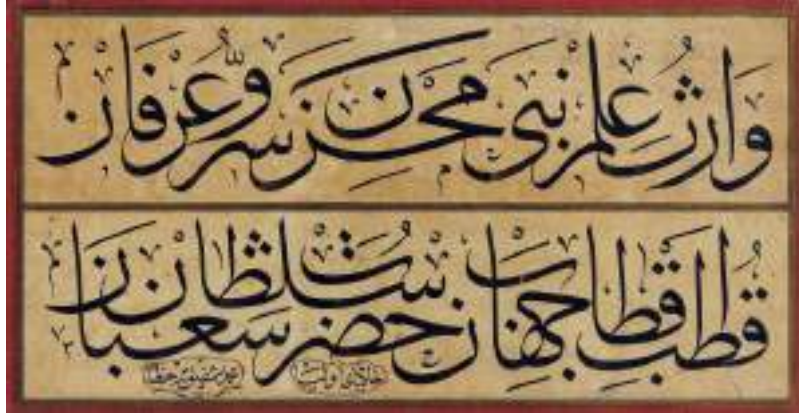 وَارثُ علم نبى مخزن سرّ و عرفان
قطب اقطاب جهان حضرت سلطان شعبان